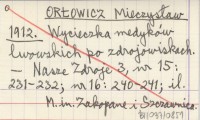 ORŁOWICZ Mieczysław
1912. Wycieczka medyków
lwowskich po zdrojowiskach.
– Nasze Zdroje 3, nr 15:
231-232; nr 16: 240-241; il.
M.in. Zakopane i Szczawnica.